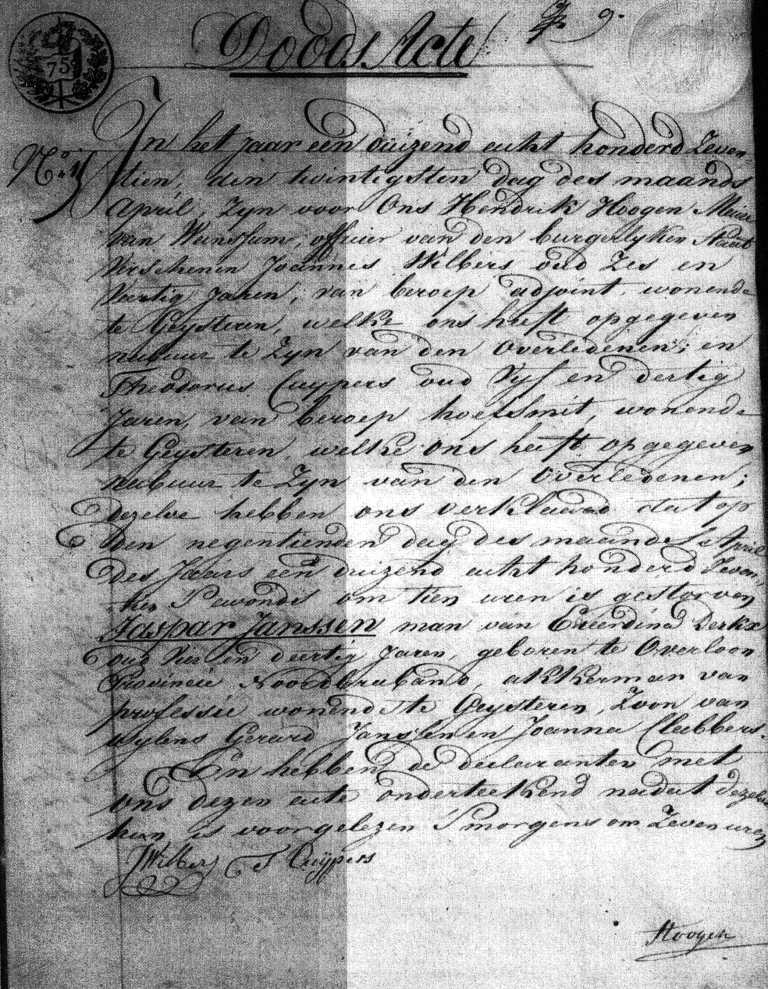 9.
75
Doods Acte
No. 1
In het jaar een duizend acht honderd Zeven-
tien, den twintigsten dag des maands
April, Zyn voor Ons Hendrik Hoogen Maire
van Wanssum, officier van den burgerlyken Staat
Verschenen Joannes Wilbers oud Zes en
Veertig jaren, van beroep adjoint, wonende
te Geysteren, welke ons heeft opgegeven
nabuur te Zyn van den Overledenen; en
Theodorus Cuypers oud Vyf en dertig
Jaren, van beroep hoefsmit, wonende
te Geysteren, welke ons heeft opgegeven
nabuur te Zyn van den Overledenen;
dezelve hebben ons verklaard dat op
den negentienden dag des maands April
des Jaars een duizend acht honderd Zeven-
tien S'avonds om tien uren is gestorven
Jaspar Janssen man van Everdina Derkx
oud Vier en deertig Jaren, geboren te Overloon
Provincie Noordbraband, akkerman van
professie wonende te Geysteren, Zoon van
wylens Gerard Janssen en Joanna Clabbers.
En hebben de declaranten met
ons dezen acte onderteekend nadat dezelve
hun is voorgelezen S'morgens om Zeven uren
JWilbers T Cuÿpers
Hoogen